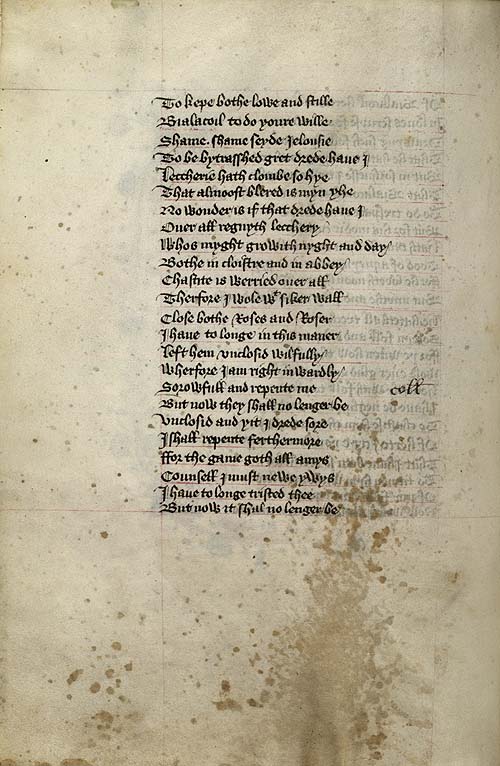 To kepe bothe lowe and stille
Bialacoil to do youre wille
Shame. shame seyde Jelousie
To be bytrasshed gret drede haue J
Leccherie hath clombe so hye
That almoost blered is myn yhe
No wonder is if that drede haue J
Ouer all regnyth lecchery
Whos myght growith nyght and day
Bothe in cloistre and in abbey
Chastite is werried ouer all
Therfore J wole wt siker wall
Close bothe Roses and Roser
J haue to longe in this maner
Left hem vnclosid wilfully
Wherfore J am right inwardly
Sorowfull and repente me
coll
But now they shall no lenger be
Vnclosid and yit J drede sore
J shall repente ferthermore
ffor the game goth all amys
Counsell J must newe ywys
J haue to longe tristed thee
But now it shal no lenger be